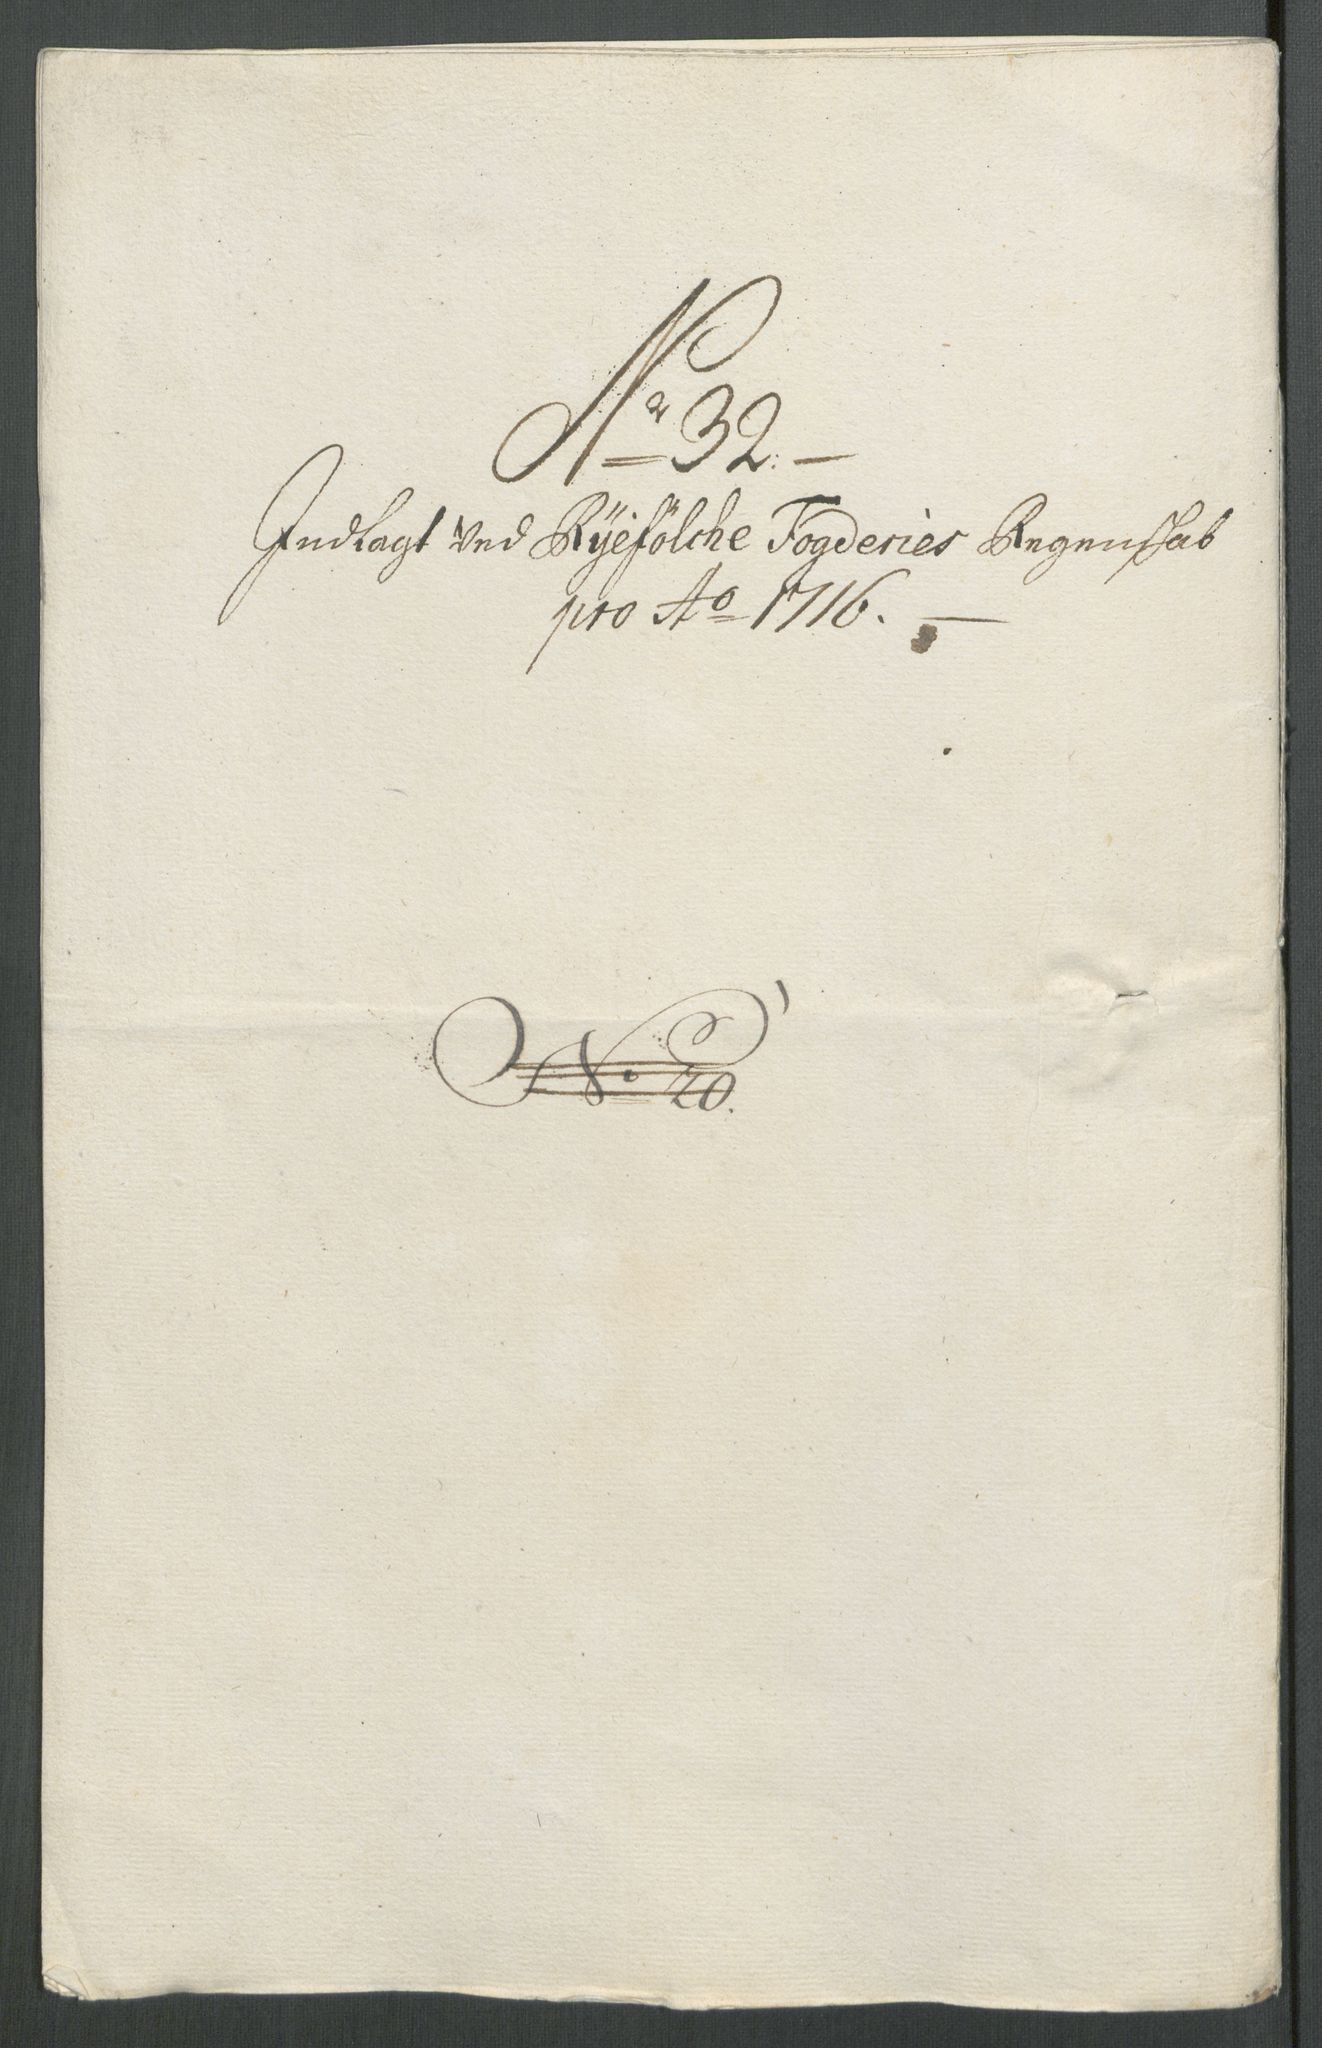 Nr 32. —
Indlagt Ved Rÿefölche Fogderies Regenskab
pro Ao 1716. —
N. 20.